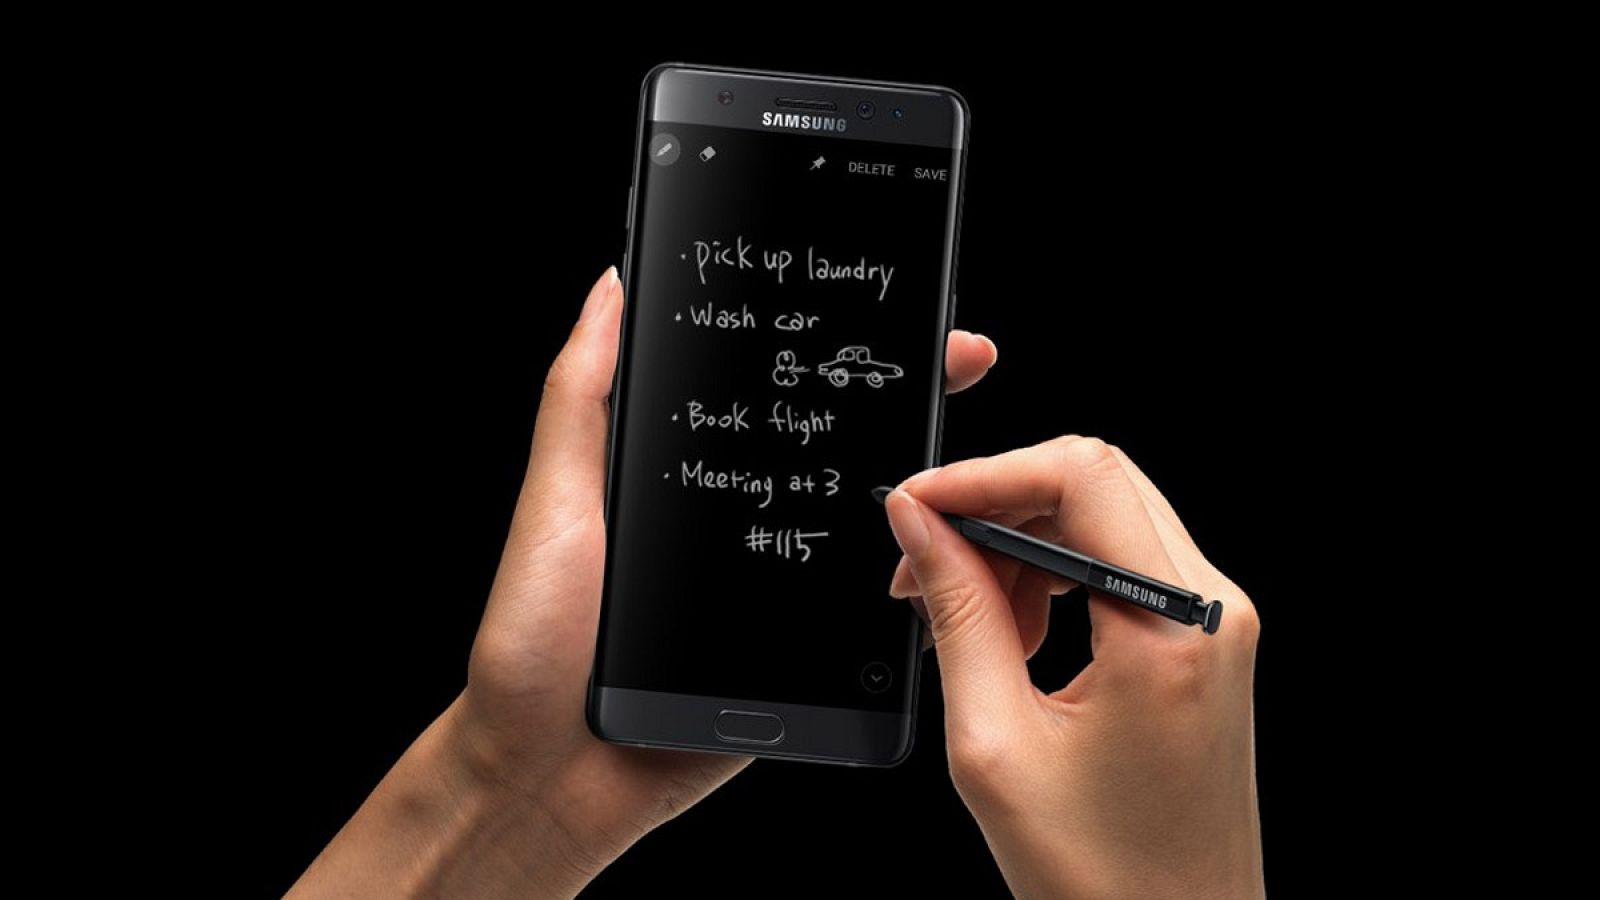 SAMSUNG
DELETE SAVE
• pick up laundry
• Wash car
• Book flight
• Meeting at 3
#115
SAMSUNG